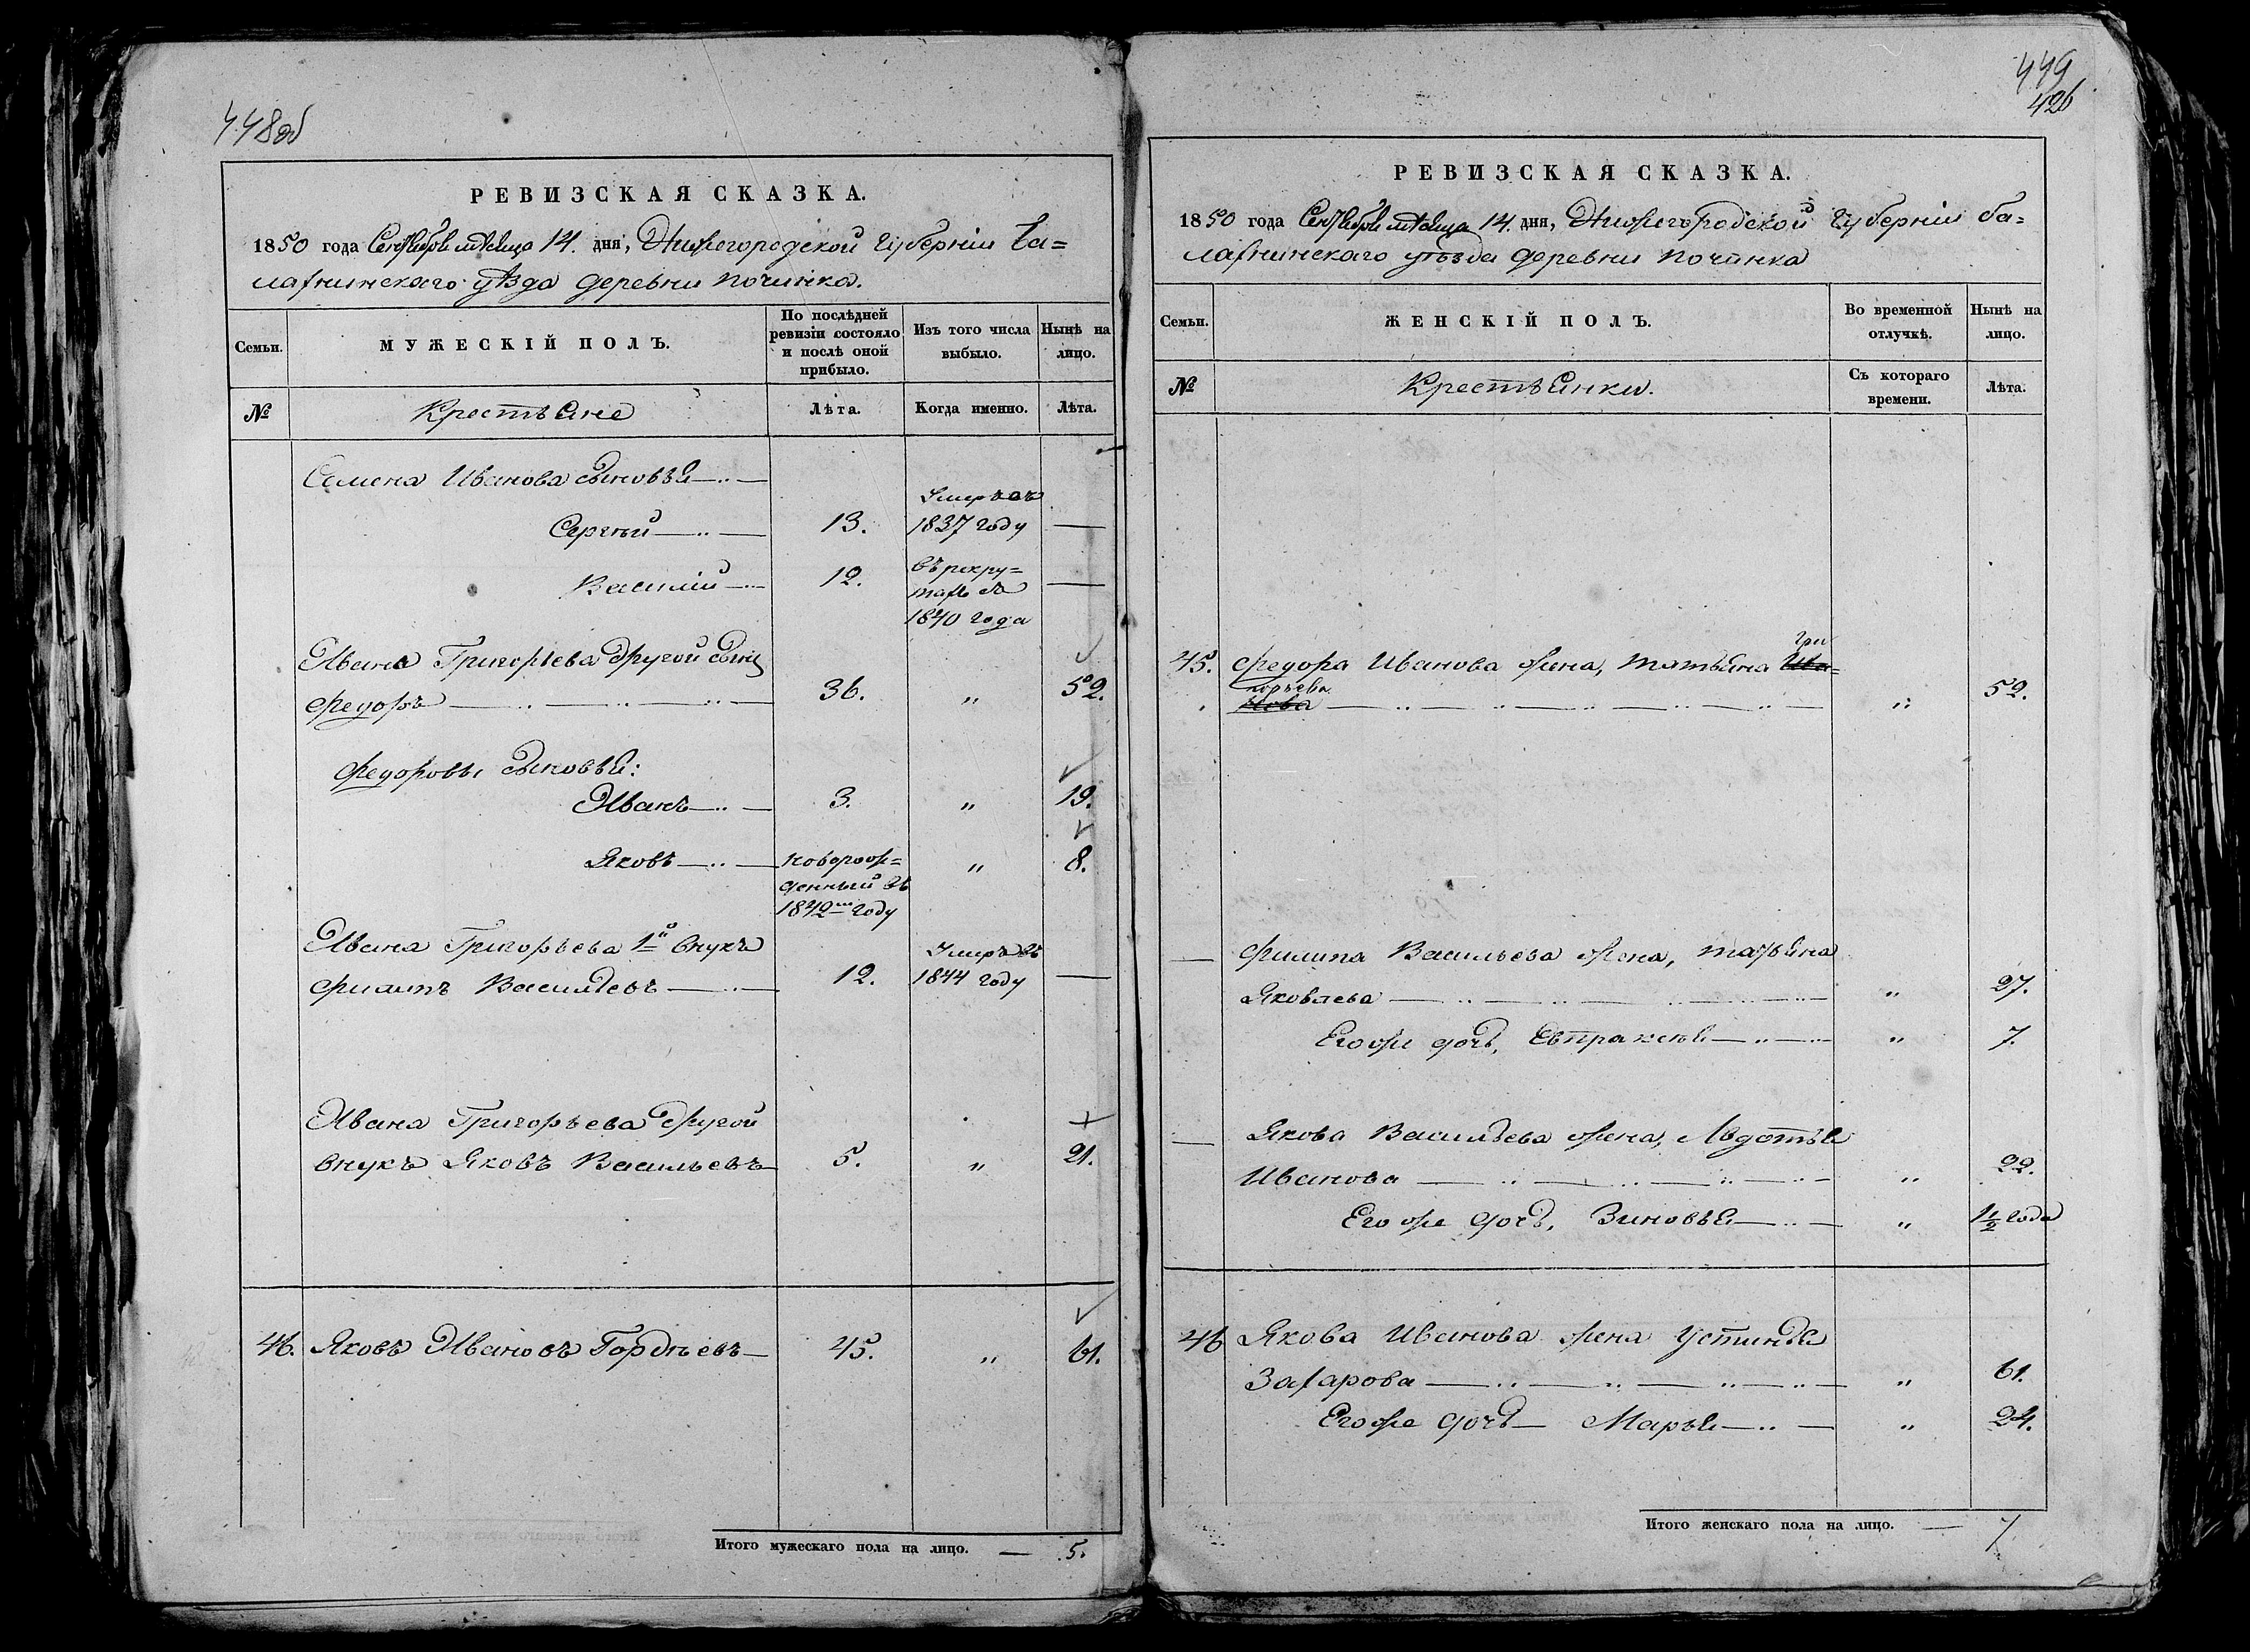 448об
РЕВИЗСКАЯ СКАЗКА.
1850 года Сентября мѣсяца 14. дня, Нижегородской губерніи Ба=
лахнинскаго уѣзда деревни Починка.
Семьи.
МУЖЕСКІЙ ПОЛЪ.
По послѣдней ревизіи состояло и послѣ оной прибыло.
Изъ того числа выбыло.
Нынѣ на лицо.
№
Крестьяне
Лѣта.
Когда именно.
Лѣта.
Семена Иванова сыновья
Умеръ въ
Сергѣй 13. 1837 году —
Василій 12. въ рекру=
тахъ съ —
1840 года
Ивана Григорьева другой сынъ
Федоръ 36. „ 52.
Федоровы сыновья:
Иванъ 3. „ 19.
Яковъ новорож= „ 8.
денный въ
1842м году
Ивана Григорьева 1й внукъ Умеръ въ
Филипъ Васильевъ 12. 1844 году —
Ивана Григорьева другой
внукъ Яковъ Васильевъ 5. „ 21.
46. Яковъ Ивановъ Гордѣевъ 45. „ 61.
Итого мужескаго пола на лицо. — 5.
449
426
РЕВИЗСКАЯ СКАЗКА.
1850 года Сентября мѣсяца 14. дня, Нижегородской губерніи Ба=
лахнинскаго уѣзда деревни Починка
Семьи.
ЖЕНСКІЙ ПОЛЪ.
Во временной отлучкѣ.
Нынѣ на лицо.
№
Крестьянки.
Съ котораго времени.
Лѣта.
Гри
45. Федора Иванова жена, Татьяна Ива=
горьева
нова „ 52.
— Филипа Васильева жена, Татьяна
Яковлева „ 27.
Его же дочь, Евпраксѣя „ 7.
— Якова Васильева жена, Авдотья
Иванова „ 22.
Его же дочь, Зиновья „ 1 1/2 года
46 Якова Иванова жена Устинья
Захарова „ 61.
Его же дочь Марья „ 24.
Итого женскаго пола на лицо. — 7